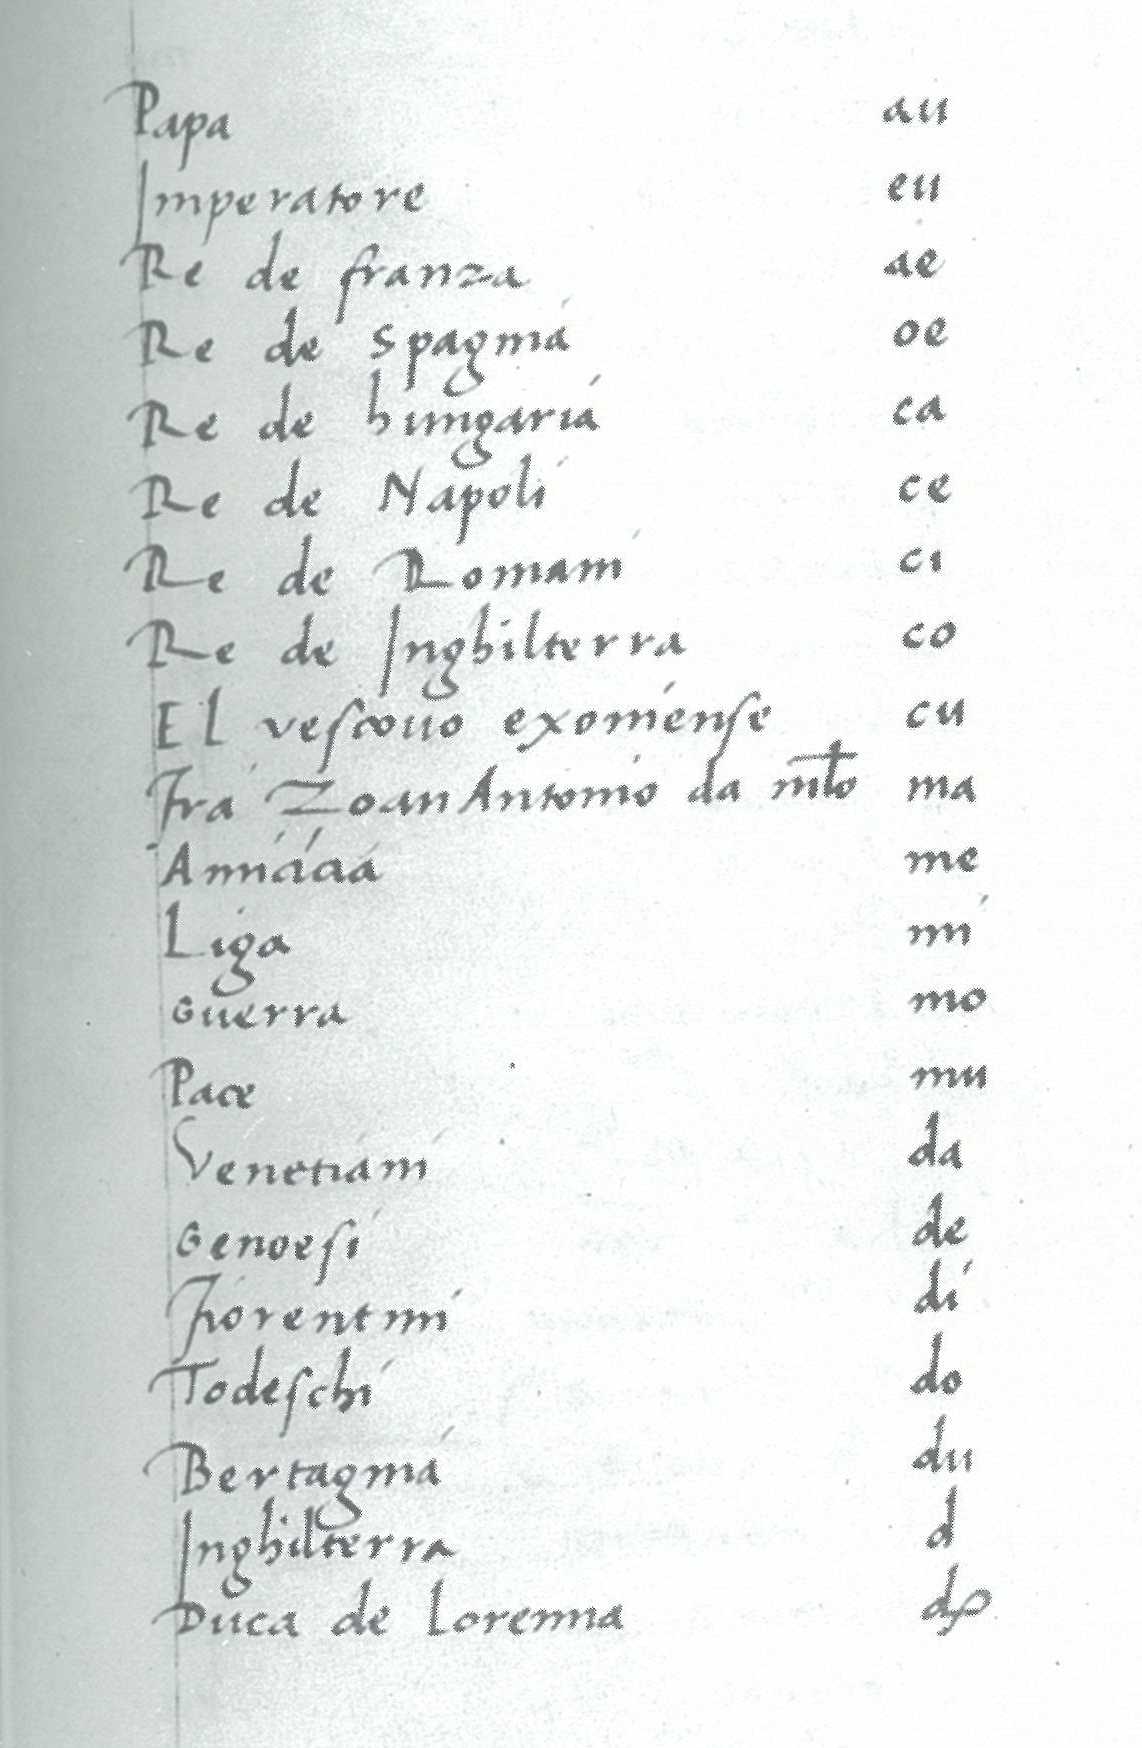 Papa au
Imperatore eu
Re de franza ae
Re de Spagnia oe
Re de hungaria ca
Re de Napoli ce
Re de Romani ci
Re de Inghilterra co
El vescouo exoniense cu
Fra Zoan Antonio da ma
Amicicia me
Liga mi
Guerra mo
Pace mu
Venetiani da
Genoesi de
Fiorentini di
Todeschi do
Bertagnia du
Inghilterra d
Duca de Lorenna